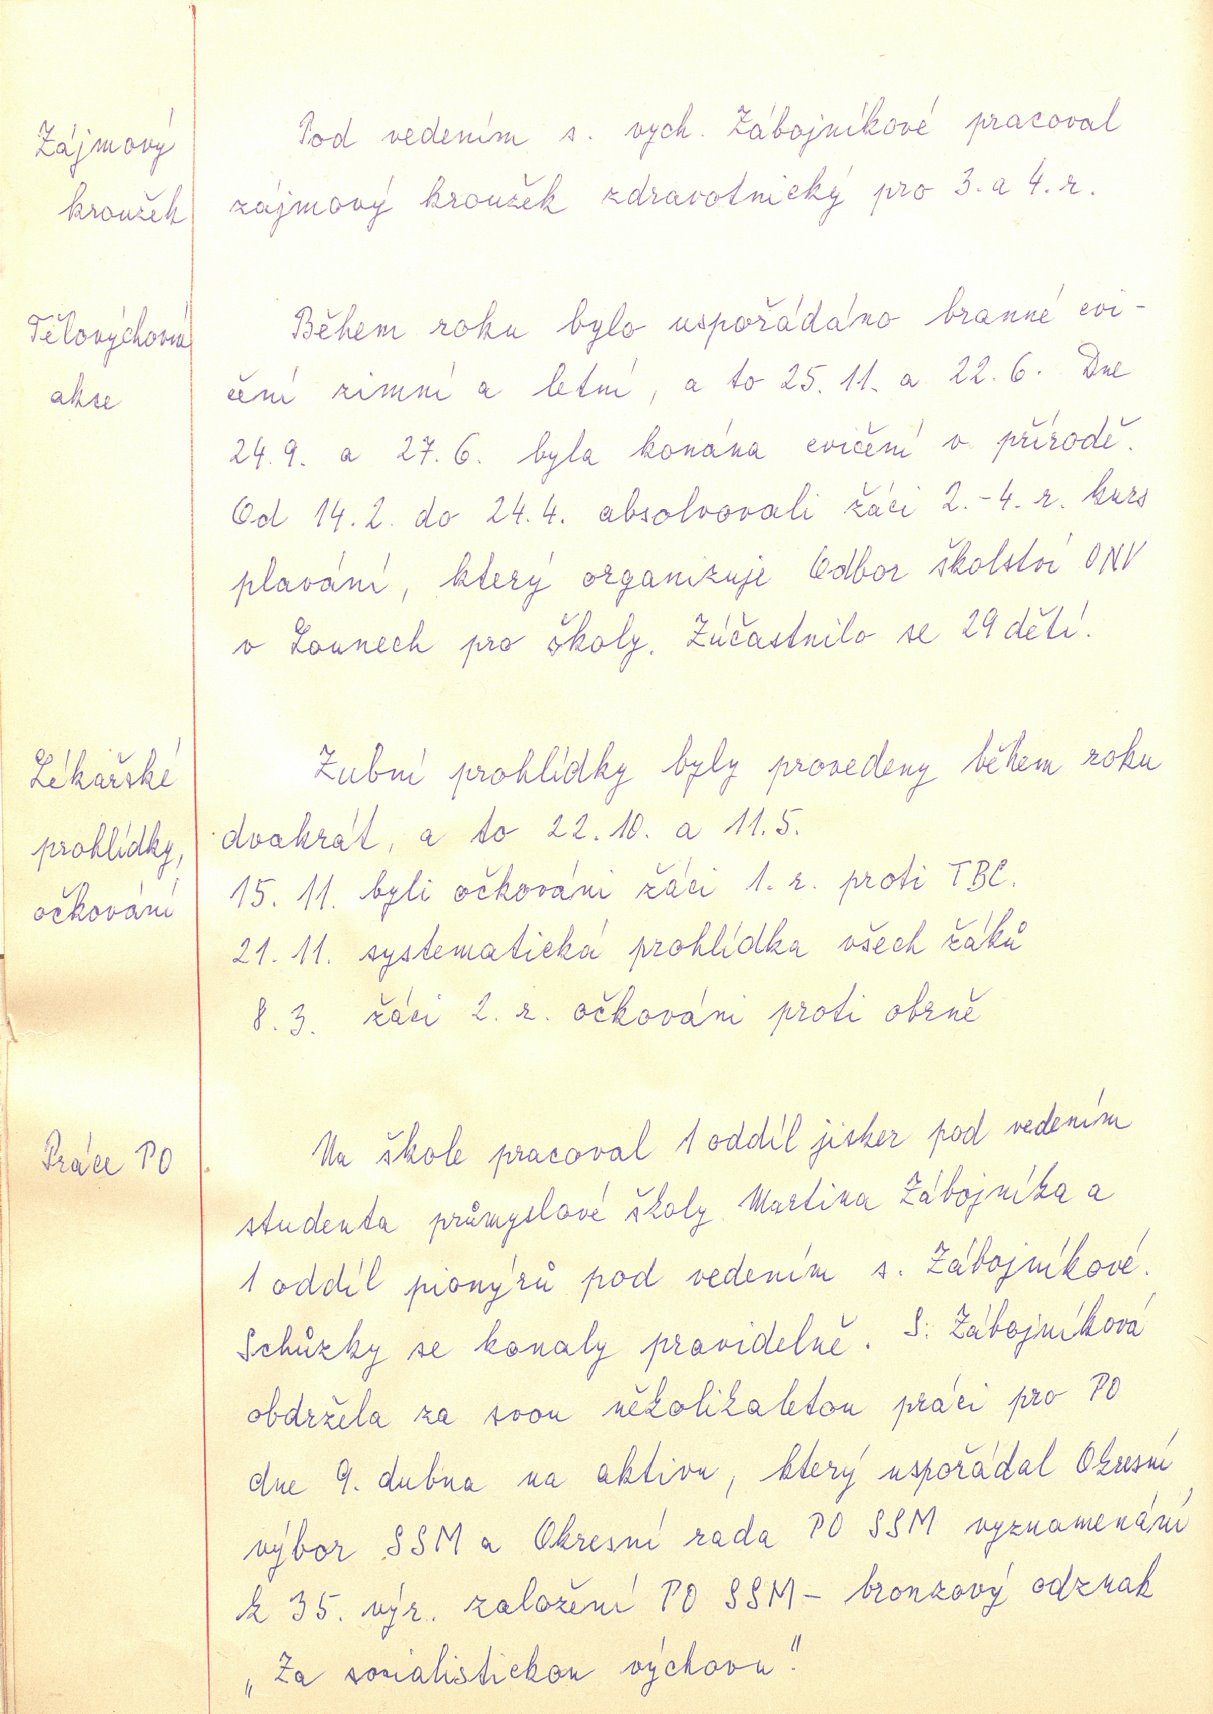 Zájmový
kroužek
Pod vedením s. vych. Zábojníkové pracoval
zájmový kroužek zdravotnický pro 3. a 4. r.
Tělovýchovná
akse
Během roku bylo uspořádáno branné cvi-
čení zimní a letní, a to 25. 11. a 22. 6. Dne
24. 9. a 27. 6. byla konána cvičení v přírodě.
Od 14. 2. do 24. 4. absolvovali žáci 2. - 4. r. kurs
plavání, který organizuje Odbor školství ONV
v Lounech pro školy. Zúčastnilo se 29 dětí.
Lékařské
prohlídky,
očkování
Zubní prohlídky byly provedeny během roku
dvakrát, a to 22. 10. a 11. 5.
15. 11. byli očkováni žáci 1. r. proti TBC.
21. 11. systematická prohlídka všech žáků
8. 3. žáci 2. r. očkováni proti obrně
Práce PO
Na škole pracoval 1 oddíl jisker pod vedením
studenta průmyslové školy Martina Zábojníka a
1 oddíl pionýrů pod vedením s. Zábojníkové.
Schůzky se konaly pravidelně. S. Zábojníková
obdržela za svou několikaletou práci pro PO
dne 9. dubna na aktivu, který uspořádal Okresní
výbor SSM a Okresní rada PO SSM vyznamenání
k 35. výr. založení PO SSM - bronzový odznak
„Za socialistickou výchovu".